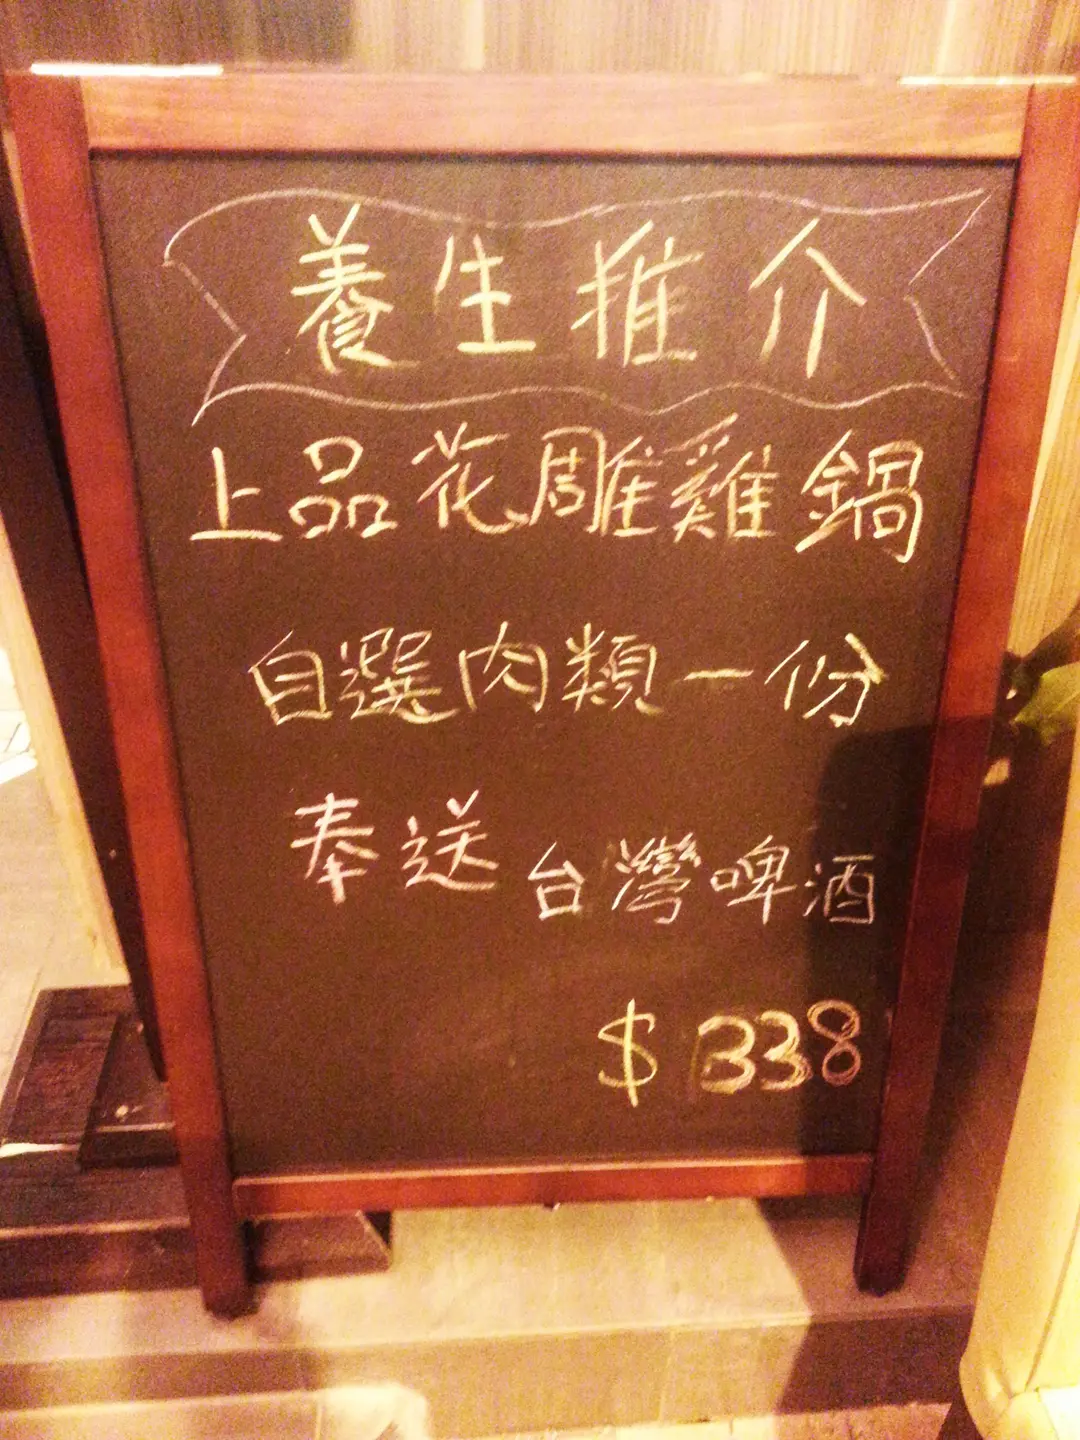 養生推介
上品花雕雞鍋
自選肉類一份
奉送台灣啤酒
$338